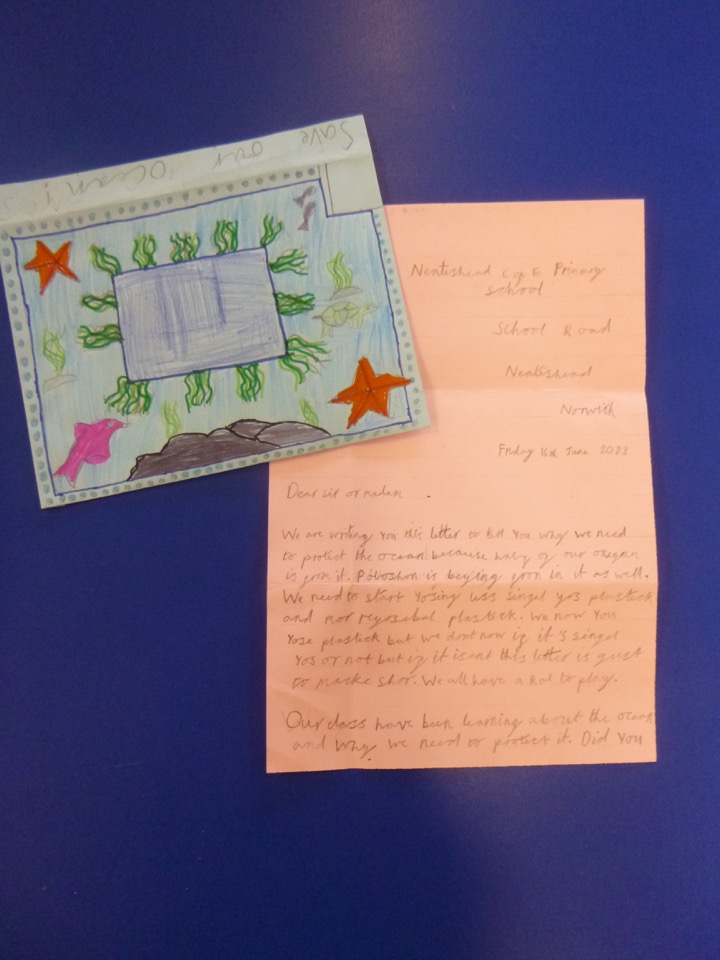 Save our Ocean's
Neatishead C of E Primary
School
School Road
Neatishead
Norwich
Friday 16th June 2023
Dear sir or madam
We are writing you this letter to tell you why we need
to protect the ocean because halvg of our oxegan
is from it. Poloshon is beying fron in it as well.
We need to start yosing less singel yos plastick
and mor reyosebal plastick. We now you
yose plastick but we dont now if it's singel
yos or not but if it isent this letter is gust
to macke shor. We all have a Rol to play.
Our class have bun learning about the ocean
and why we need to protect it. Did you